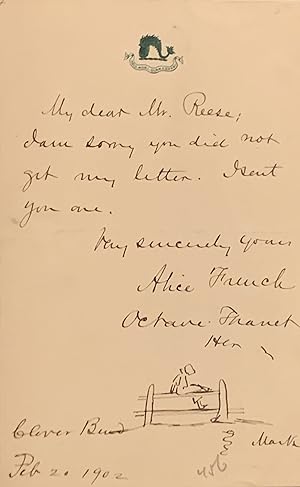 My dear Mr. Reese;
I am sorry you did not
get my letter. I sent
you one.
Very sincerely yours
Alice French
Octave Thanet
Her
Mark
Clover Bend
Feb 20 1902